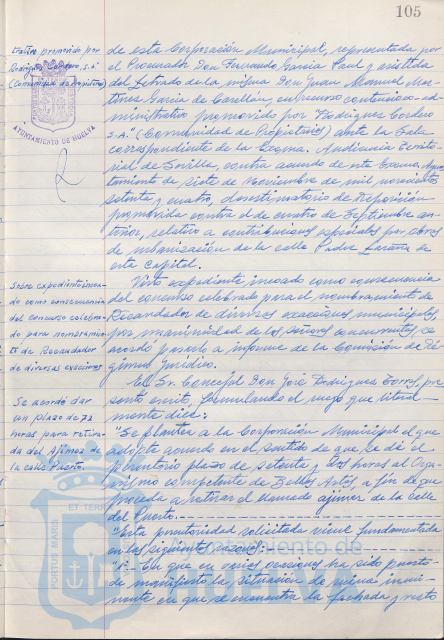 105
trativo promovido por
Rodríguez Cordero, S.A.
(Comunidad de Propietarios)
AYUNTAMIENTO DE HUELVA
de esta Corporación Municipal, representada por
el Procurador Don Fernando García Paul y asistida
del Letrado de la misma Don Juan Manuel Mar-
tínez García de Casellán, en recurso contencioso-ad-
ministrativo promovido por "Rodríguez Cordero
S.A." (Comunidad de Propietarios) ante la Sala
correspondiente de la Excma. Audiencia Territo-
rial de Sevilla, contra acuerdo de este Excmo. Ayun-
tamiento de siete de Noviembre de mil novecientos
setenta y cuatro, desestimatorio de reposición
promovida contra el de cuatro de Septiembre an-
terior, relativo a contribuciones especiales por obras
de urbanización de la calle Padre
esta Capital.
Sobre expediente incoa-
do como consecuencia
del concurso celebra-
do para nombramien-
to de Recaudador
de diversas exacciones
Visto expediente incoado como consecuencia
del concurso celebrado para el nombramiento de
Recaudador de diversas exacciones municipales,
por unanimidad de los señores concurrentes se
acordó pasarlo a informe de la Comisión de Ré-
gimen Jurídico.
Se acordó dar
un plazo de 72
horas para retira-
da del Ajimez de
la calle Puerto.
El Sr. Concejal Don José Rodríguez Torres, pre-
sentó escrito, formulando el ruego que literal-
mente dice:
"Se plantea a la Corporación Municipal el que
adopte acuerdo en el sentido de que se dé el
perentorio plazo de setenta y dos horas al Orga-
nismo competente de Bellas Artes, a fin de que
proceda a retirar el llamado ajimez de la calle
del Puerto.
"Esta perentoriedad solicitada viene fundamentada
en las siguientes razones:
"1º- En que en varias ocasiones ha sido puesto
de manifiesto la situación de ruina inmi-
nente en que se encuentra la fachada y resto
PORTUS MARIS ET TERRAE
Ayuntamiento de